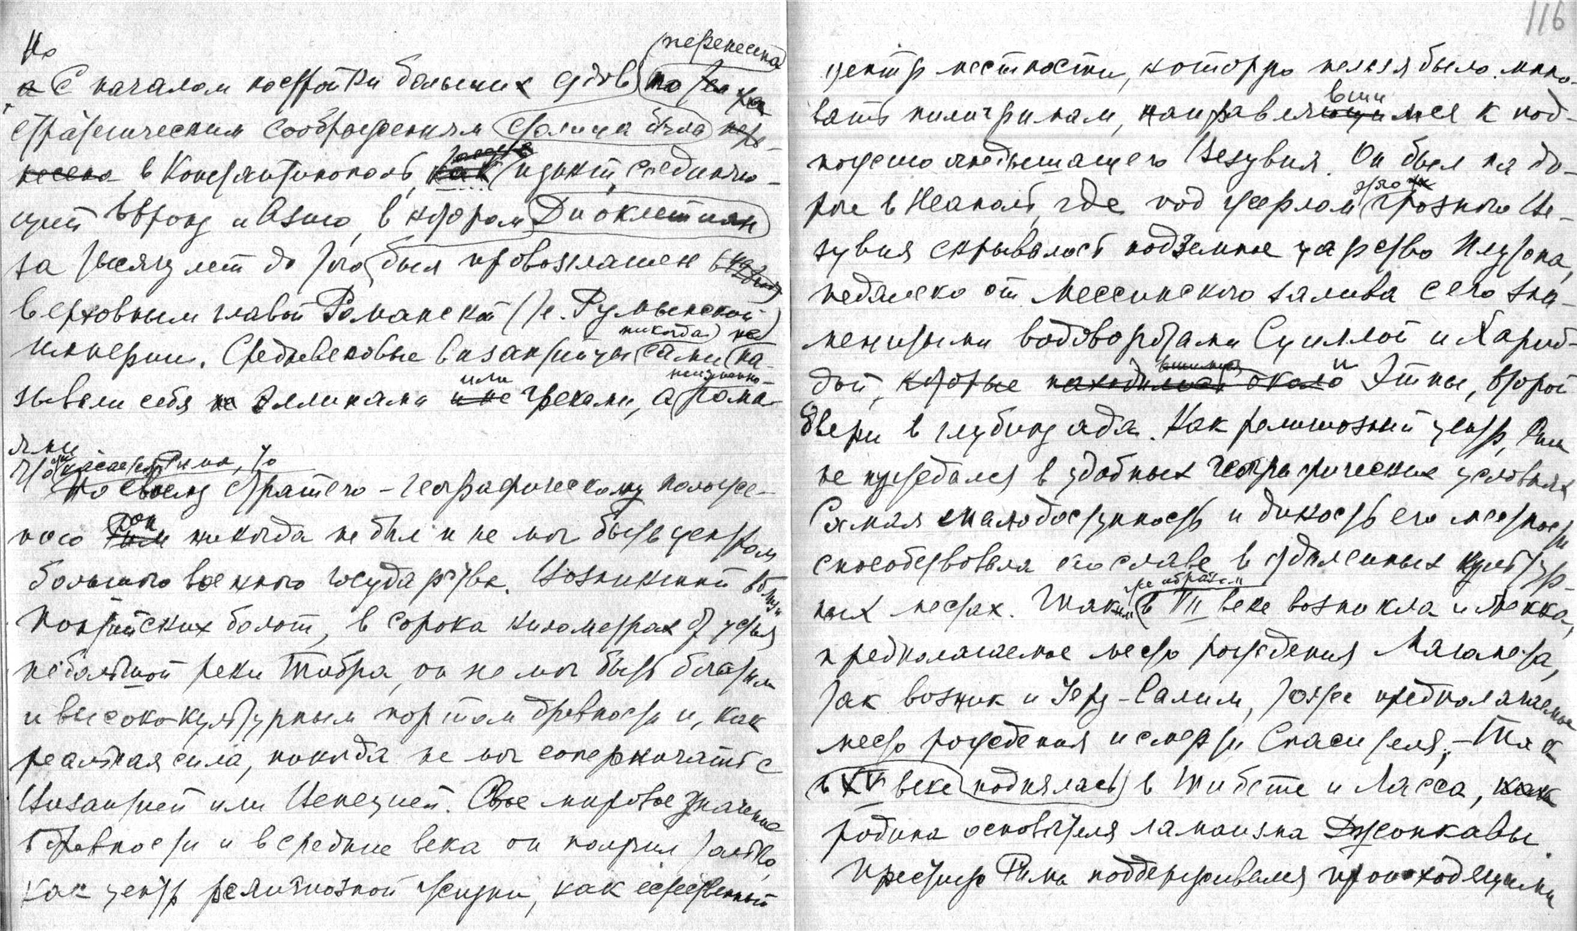 Но
а С началом постройки больших судов по стра-
перенесена
стратегическим соображениям столица была пере-
несена в Константинополь, как пункт соединяю-
щий Европу и Азию, в котором Диоклетиан
за тысячу лет до того был провозглашен
верховным главой Романской (т.е. Румынской)
никогда не
империи. Средневековые византийцы сами на-
или неизменно
зывали себя не эллинами и не греками, а рома-
ями
Что касается Рима, то
По своему стратего-географическому положе-
он
нию Рим никогда не был и не мог быть центром
большого военного государства. Возникший вблизи
Понтийских болот, в сорока километрах от устья
небольшой реки Тибра, он не мог быть богатым
и высококультурным портом древности и, как
реальная сила, никогда не мог соперничать с
Византией или Венецией. Свое мировое значение
в древности и в средние века он получил только,
как центр религиозной жизни, как естественный
116
центр местности, которую нельзя было мино-
вши
вать пилигримам, направляющимся к под-
ножию огнедышащего Везувия. Он был на до-
роге в Неаполь, где под жерлом грозного Ве-
зувия скрывалось подземное царство Плутона,
недалеко от Мессинского залива с его зна-
менитыми водоворотами Сциллой и Хариб-
и
дой, которые находились около Этны, второй
двери в глубину ада. Как религиозный центр, Рим
не нуждался в удобных географических условиях
Самая малодоступность и дикость его местности
способствовала его славе в отдаленных культур-
же образом
ных местах. Таким в VII веке возникла и Мекка,
предполагаемое место рождения Магомета,
так возник и Иеру-Салим, тоже предполагаемое
место рождения и смерти Спасителя,—Так
в XV веке поднялась в Тибете и Лхасса, как
родина основателя ламаизма Дзонкавы.
Престиж Рима поддерживался происходящими